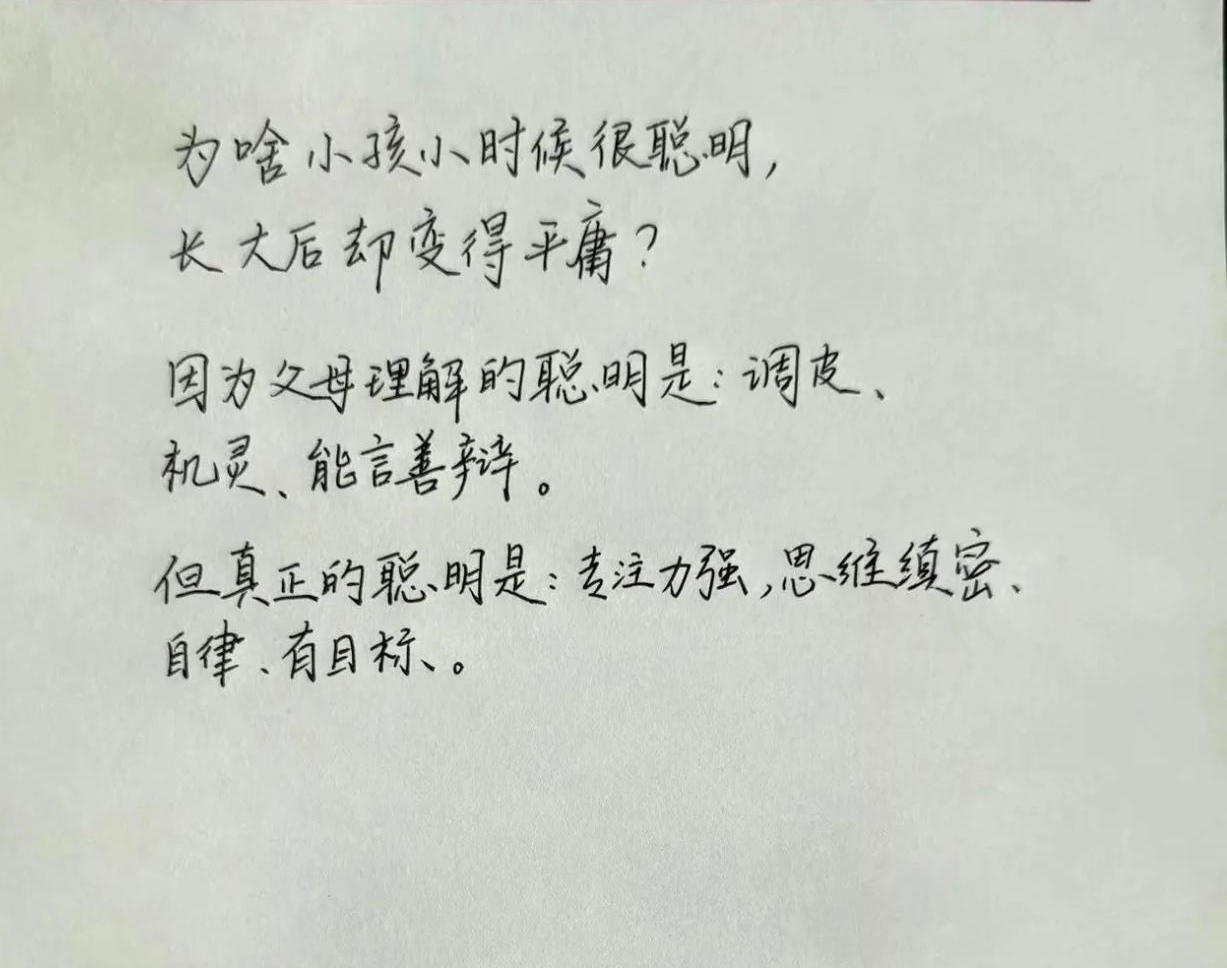 为啥小孩小时候很聪明,
长大后却变得平庸?
因为父母理解的聪明是:调皮、
机灵、能言善辩。
但真正的聪明是:专注力强,思维缜密、
自律、有目标、。